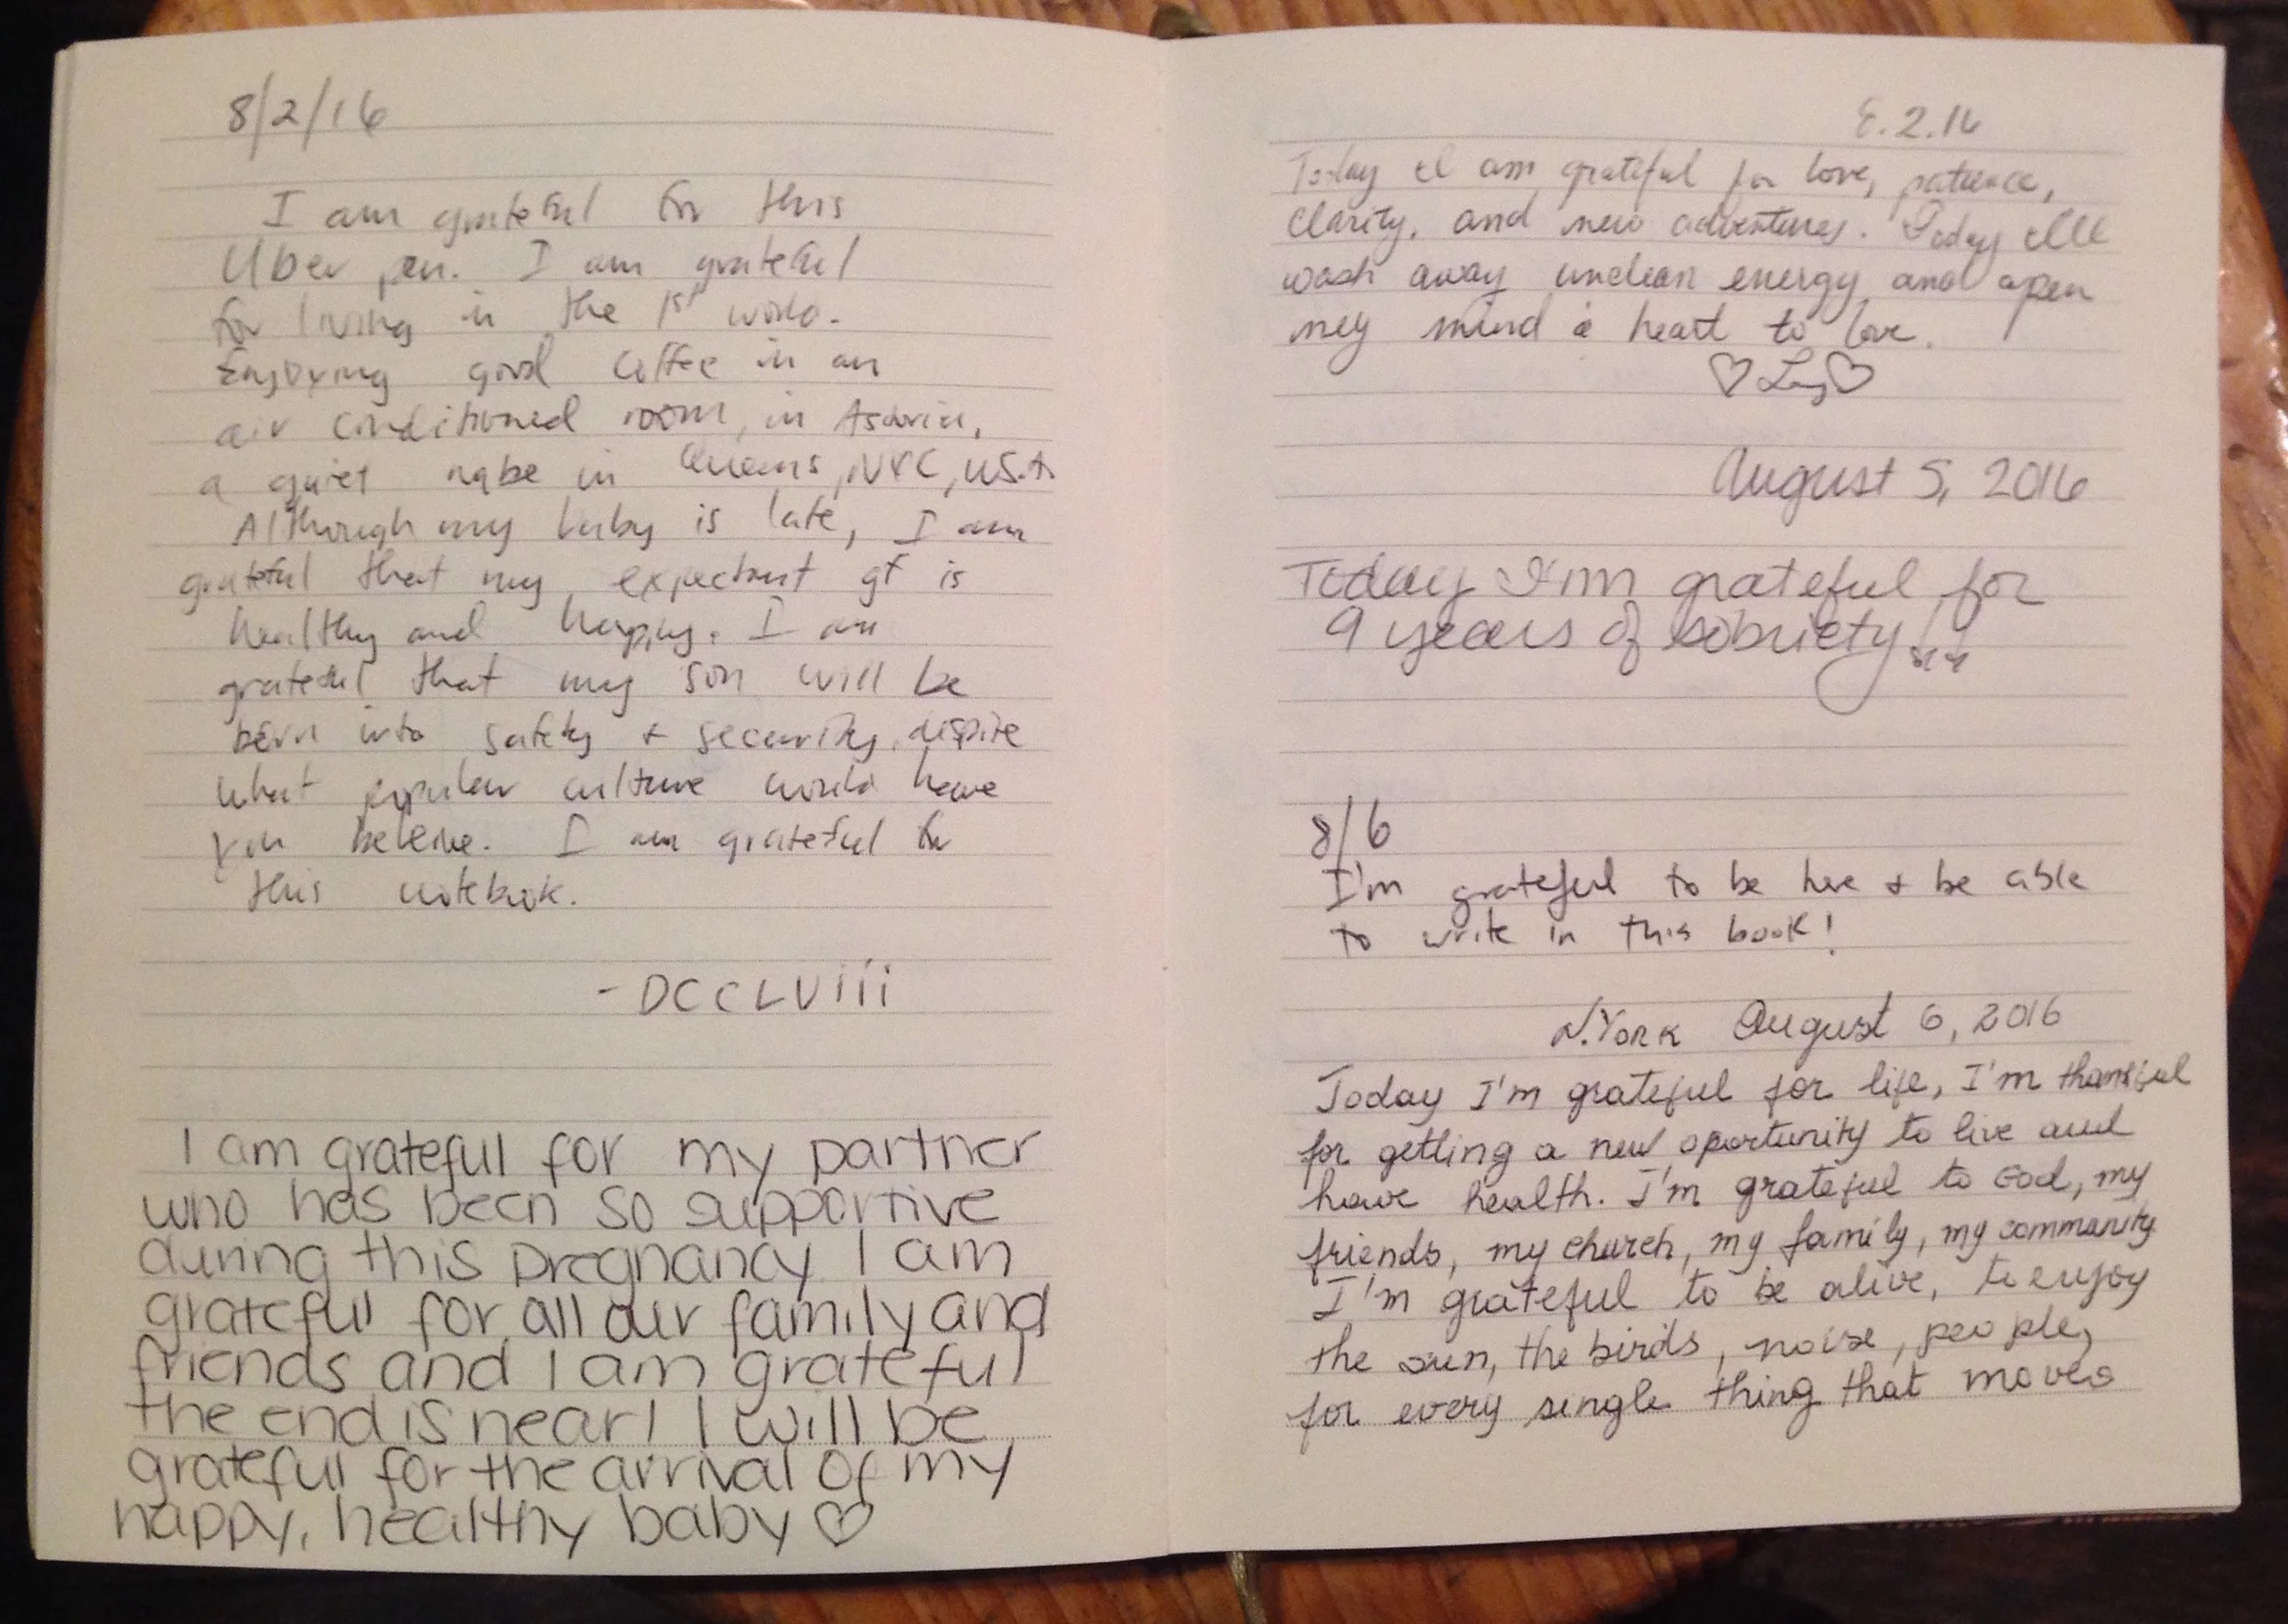 8/2/16
I am grateful for this
Uber pen. I am grateful
for living in the 1st world.
Enjoying good coffee in an
air conditioned room, in Astoria,
a quiet nabe in Queens, NYC, USA
Although my baby is late, I am
grateful that my expectant gf is
healthy and happy. I am
grateful that my son will be
born into safety + security, dispite
what popular culture would have
you believe. I am grateful for
this notebook.
- DCCLViii
I am grateful for my partner
who has been so supportive
during this pregnancy I am
grateful for all our family and
friends and I am grateful
the end is near! I will be
grateful for the arrival of my
happy, healthy baby ♡
8.2.16
Today I am grateful for love, patience,
clarity, and new adventures. Today I'll
wash away unclean energy and open
my mind & heart to love.
♡ ♡
August 5, 2016
Today I'm grateful for
9 years of sobriety!!
8/6
I'm grateful to be here + be able
to write in this book!
N.York August 6, 2016
Today I'm grateful for life, I'm thankful
for getting a new oportunity to live and
have health. I'm grateful to God, my
friends, my church, my family, my community
I'm grateful to be alive, to enjoy
the sun, the birds, noise, people,
for every single thing that moves